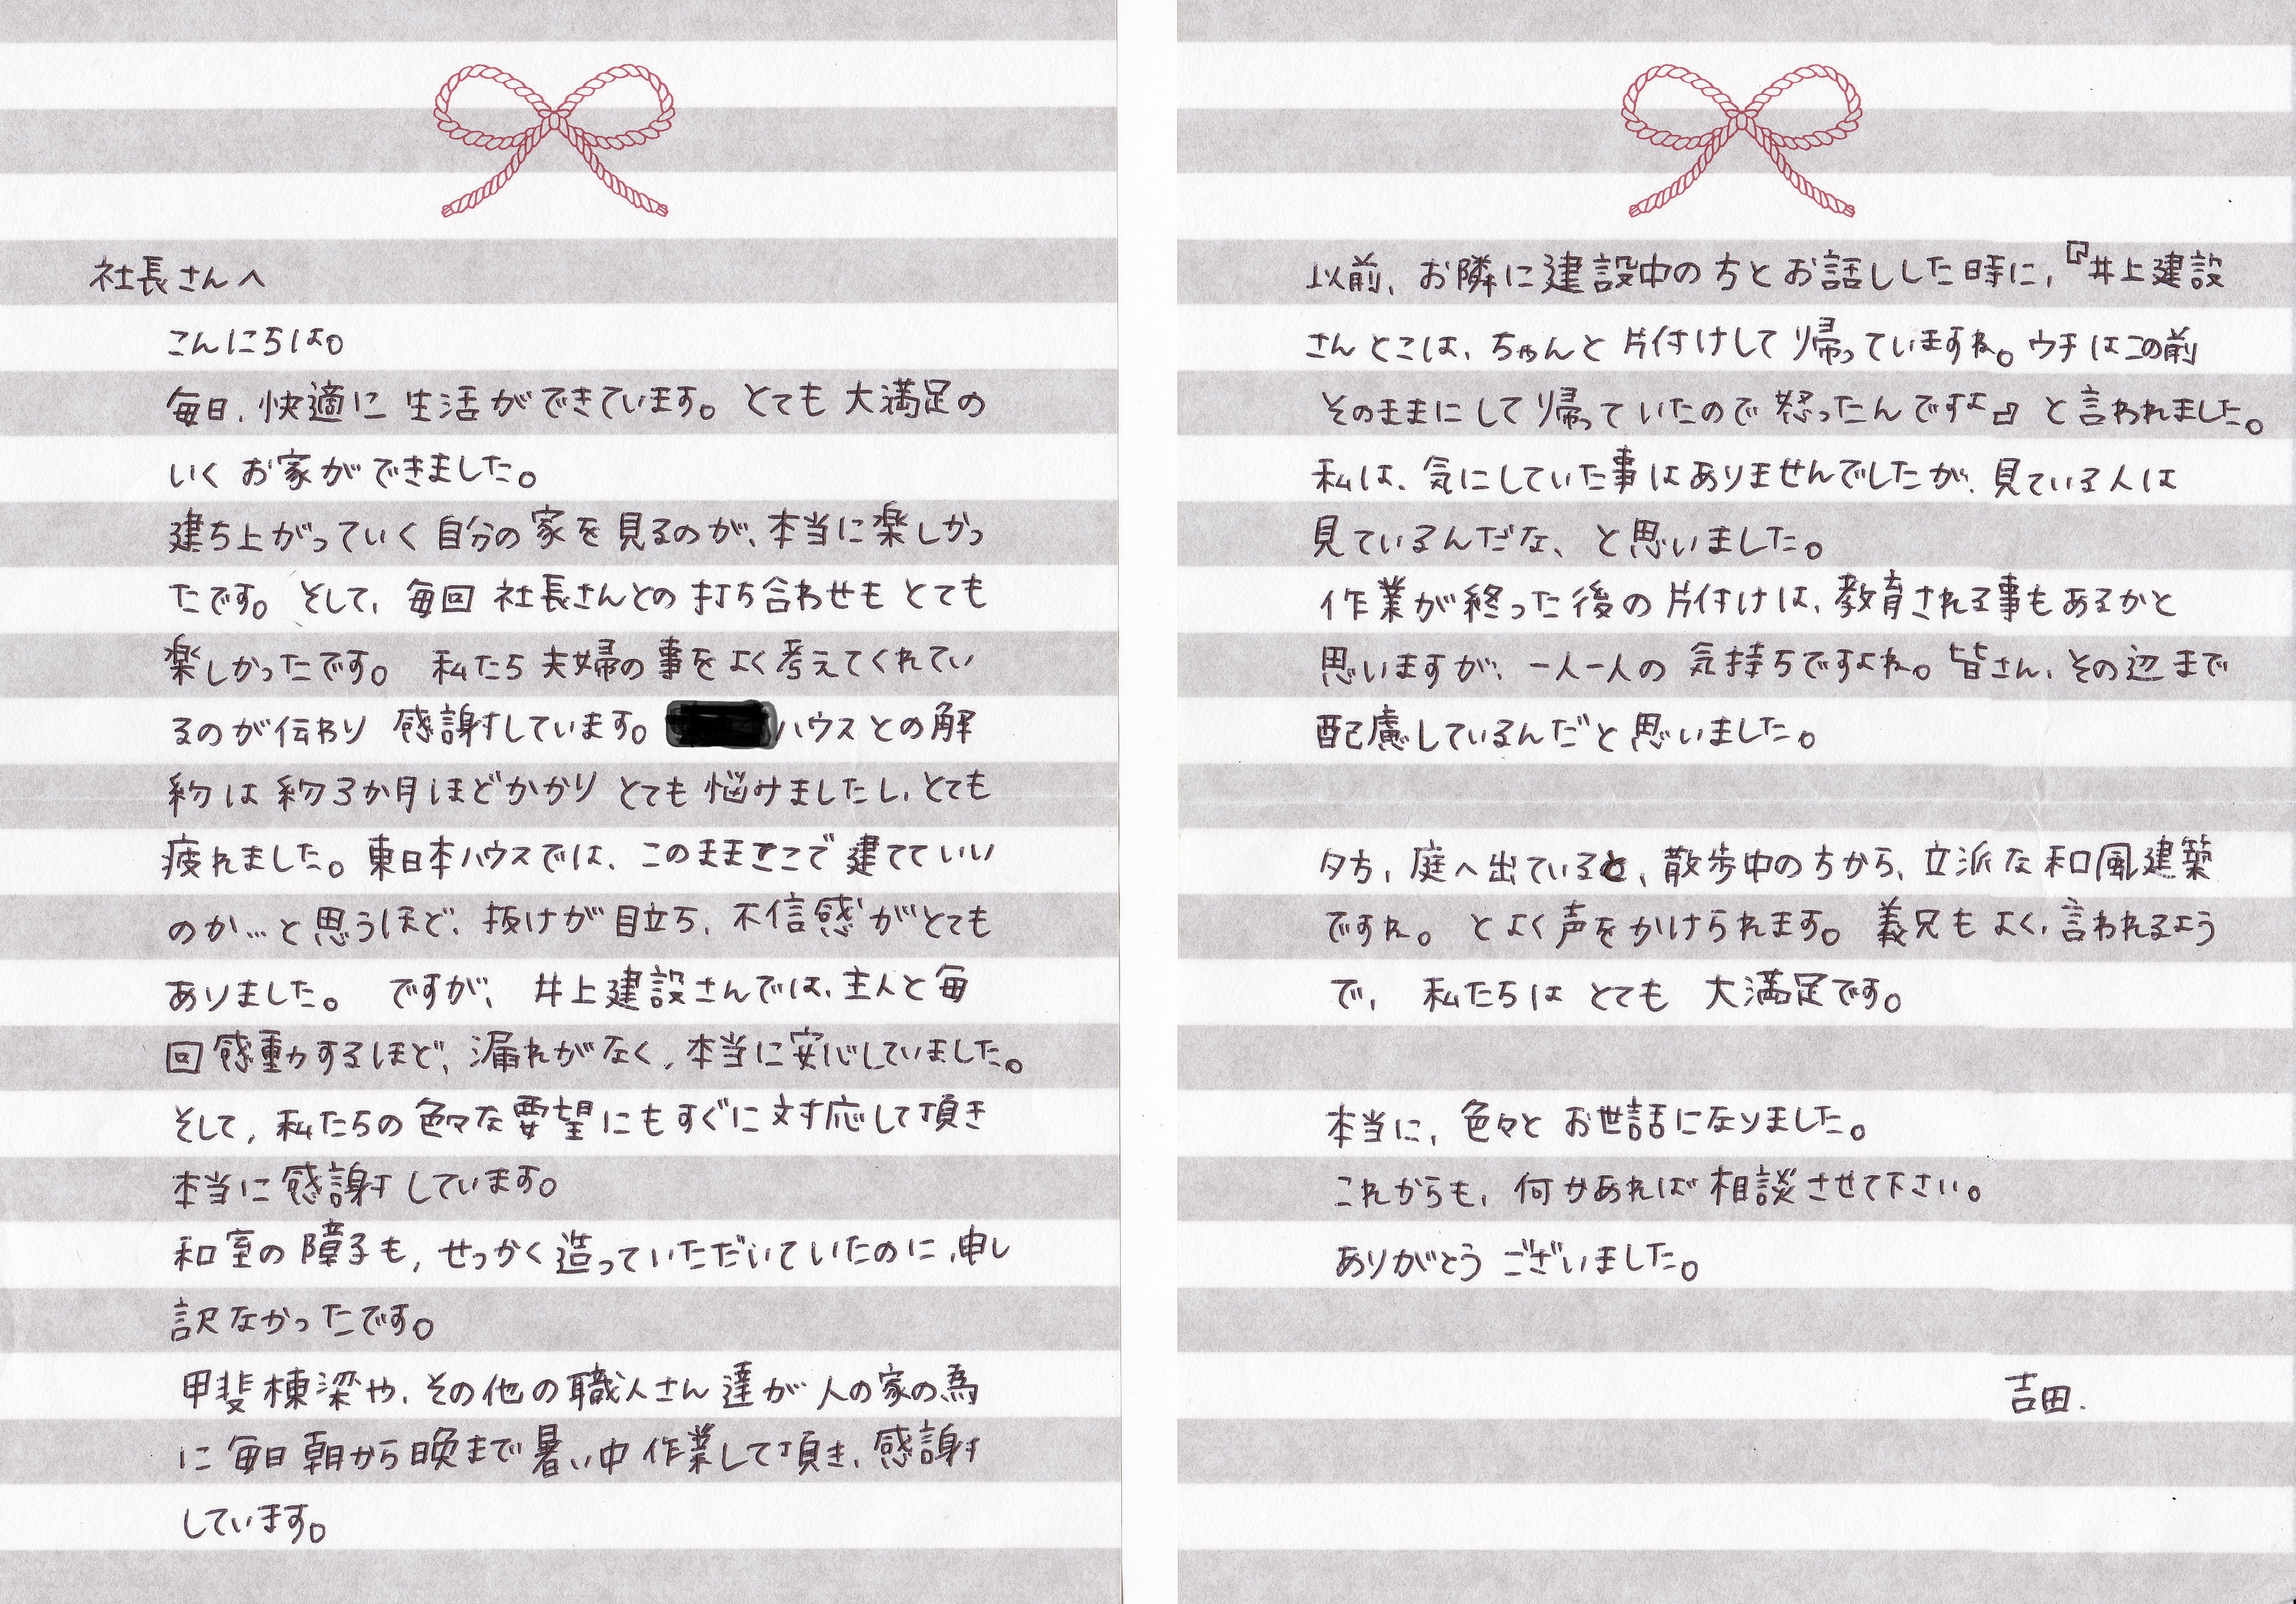 社長さんへ
こんにちは。
毎日、快適に生活ができています。とても大満足の
いくお家ができました。
建ち上がっていく自分の家を見るのが、本当に楽しかっ
たです。そして、毎回社長さんとの打ち合わせもとても
楽しかったです。私たち夫婦の事をよく考えてくれてい
るのが伝わり感謝しています。ハウスとの解
約は約3か月ほどかかりとても悩みましたし、とても
疲れました。東日本ハウスでは、このままここで建てていい
のか…と思うほど、抜けが目立ち、不信感がとても
ありました。ですが、井上建設さんでは、主人と毎
回感動するほど、漏れがなく、本当に安心していました。
そして、私たちの色々な要望にもすぐに対応して頂き
本当に感謝しています。
和室の障子も、せっかく造っていただいていたのに、申し
訳なかったです。
甲斐棟梁や、その他の職人さん達が人の家の為
に毎日朝から晩まで暑い中作業して頂き、感謝
しています。
以前、お隣に建設中の方とお話しした時に、『井上建設
さんとこは、ちゃんと片付けして帰っていますね。ウチはこの前
そのままにして帰っていたので怒ったんですよ』と言われました。
私は、気にしていた事はありませんでしたが、見ている人は
見ているんだな、と思いました。
作業が終った後の片付けは、教育される事もあるかと
思いますが、一人一人の気持ちですよね。皆さん、その辺まで
配慮しているんだと思いました。
夕方、庭へ出ていると、散歩中の方から、立派な和風建築
ですね。とよく声をかけられます。義兄もよく、言われるよう
で、私たちはとても大満足です。
本当に、色々とお世話になりました。
これからも、何かあれば相談させて下さい。
ありがとうございました。
吉田.